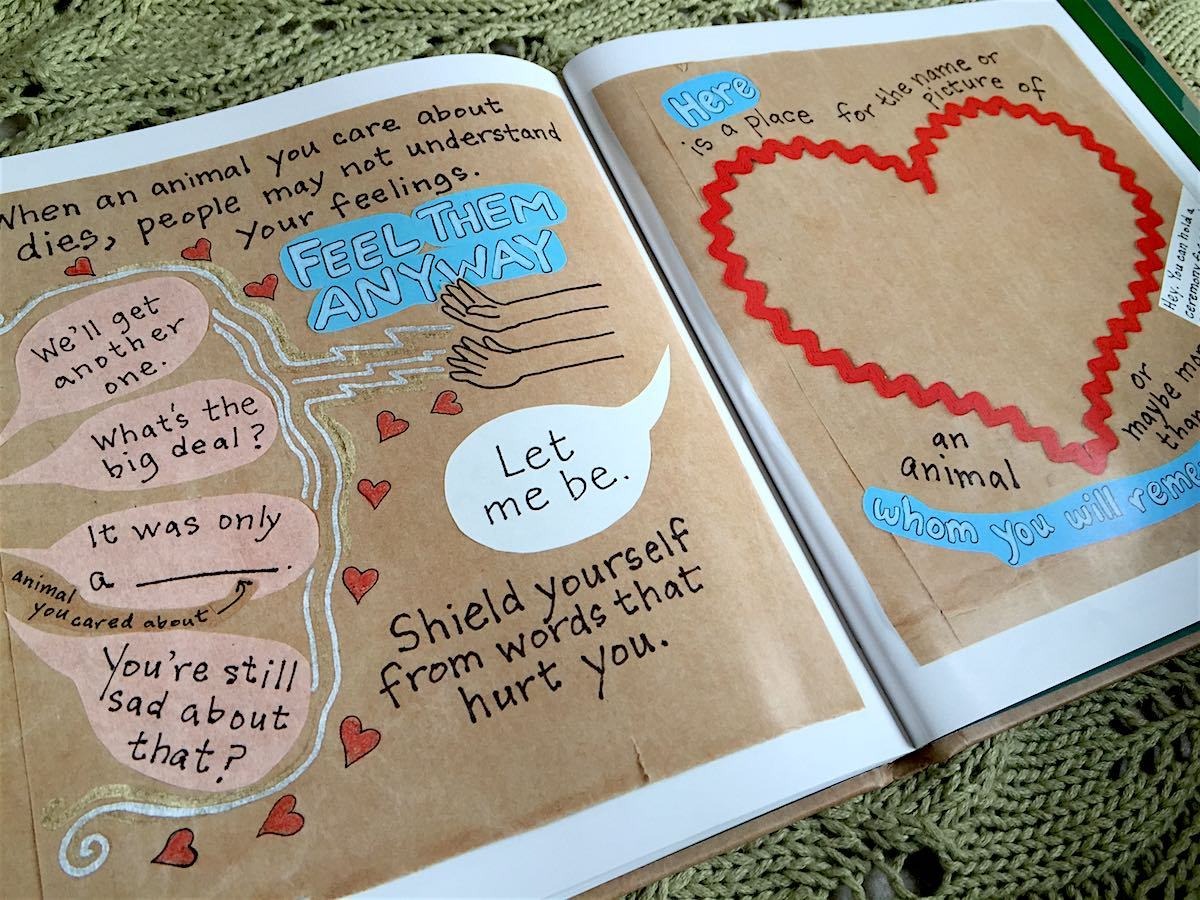 When an animal you care about
dies, people may not understand
your feelings.
FEEL THEM
ANYWAY
We'll get
another
one.
What's the
big deal?
It was only
a ________.
animal
you cared about
You're still
sad about
that?
Let
me be.
Shield yourself
from words that
hurt you.
Here
is a place for the name or
picture of
an
animal
or
maybe
whom you will
Hey. You can hold a